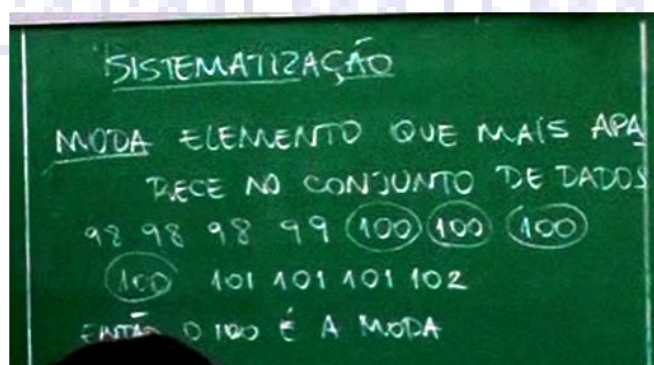 SISTEMATIZAÇÃO
MODA ELEMENTO QUE MAIS APA
RECE NO CONJUNTO DE DADOS
98 98 98 99 100 100 100
100 101 101 101 102
ENTÃO O 100 É A MODA